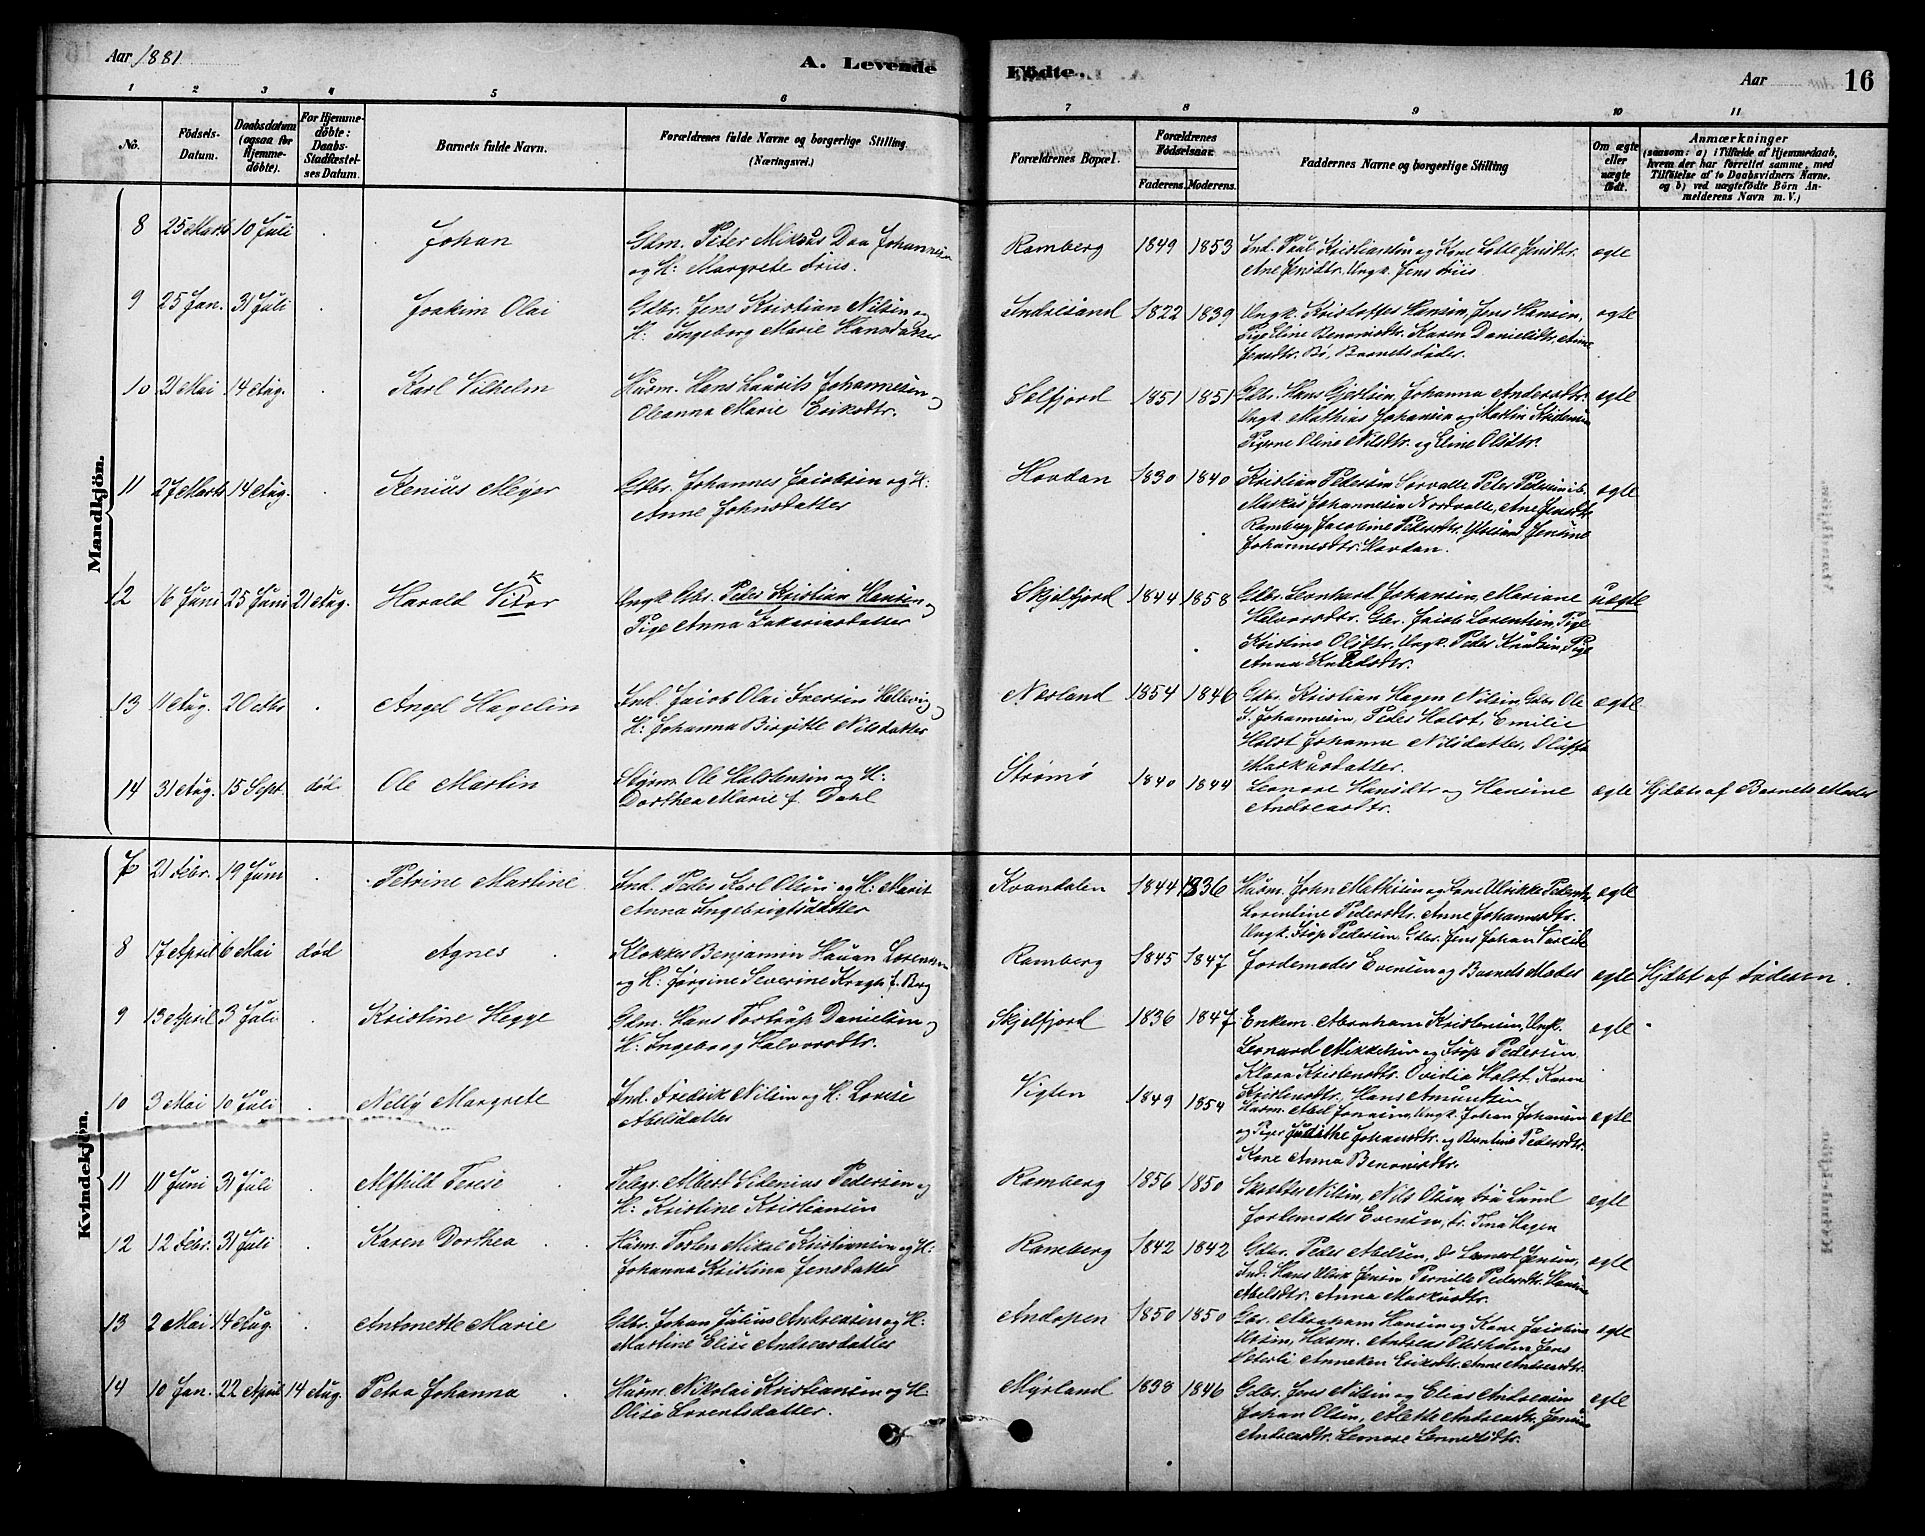 Aar 1881
A. Levende
Födte.
Aar
16
1 2 3 4 5 6 7 8 9 10 11
No.
Födsels-Datum.
Daabsdatum (ogsaa for Hjemme-döbte).
For Hjemme-döbte: Daabs-Stadfæstel-ses Datum.
Barnets fulde Navn.
Forældrenes fulde Navne og borgerlige Stilling. (Næringsvei.)
Forældrenes Bopæl.
Forældrenes Födselsaar.
Faderens. Moderens.
Faddernes Navne og borgerlige Stilling
Om ægte eller uægte födt.
Anmærkninger
(saasom: a) i Tilfælde af Hjemmedaab, hvem der har forrettet samme, med Tilföielse af to Daabsvidners Navne. og b) ved uægtefödte Börn An-melderens Navn m. V.)
Mandkjön.
8 25 Marts 10 Juli . Johan
Gdm. Peter Mikius Daa Johannesen
og H: Margrete Friis.
Ramberg 1849 1853
Ind. Paul Kristiansen og Kone Lotte Jensdtr.
Ane Jensdtr. Ungk. Jens Friis
ægte
9 25 Jan. 31 Juli . Joakim Olai
Gdbr. Jens Kristian Nilsen og
H: Ingeborg Marie Hansdatter
Indresand 1822 1839
Ungk. Kristoffer Hansen, Jens Hansen,
Pige Eline Benonisdtr. Karen Danielsdtr, Anne
Jensdtr. Bö, Barnets Fader.
ægte
10 21 Mai 14 Aug. . Karl Vilhelm
Husm. Hans Laurits Johannesen og
Oleanna Marie Eriksdtr.
Selfjord 1851 1851
Gdbr. Hans Gjertsen, Johanna Andersdtr.
Ungk. Mathias Johansen og Martin Kristensen
Pigerne Oline Nilsdtr. og Eline Olsdtr.
ægte
11 27 Marts 14 Aug. . Kenius Meyer
Gdbr. Johannes Jacobsen og H:
Anne Johnsdatter
Hovdan 1830 1840
Kristian Pedersen Sørvalle Peter Pedersen ib.
Markus Johannesen Nordvalle, Ane Jensdtr
Ramberg, Jacobine Pedersdtr. Jensine
Johannesdtr. Hovdan.
ægte
12 16 Juni 25 Juni 21 Aug. Harald Viktor
Ungk. Gbr. Peder Kristian Hansen og
Pige Anna Zakariasdatter
Skjelfjord 1844 1858
Gdbr. Leonhard Johansen, Mariane
Halvorsdtr. Gbr. Jacob Lorentsen, Pige
Kristine Olsdtr, Ungk. Peder Knudsen, Pige
Anna
uægte
13 11 Aug. 20 . Angel Hagelin
Ind. Jacob Olai Iversen Hellevig og
H: Johanna Birgitte Nilsdatter
Nesland 1854 1846
Gdbr. Kristian Hagen Nilsen, Gdbr Ole
J. Johannesen, Peder Holst, Emilie
Holst, Johanne Nilsdatter, Oluffa
Markusdatter.
ægte
14 31 Aug. 15 Sept. död Ole Martin
Styrm. Ole Halstensen og H:
Dorthea Marie f. Dahl
Strømø 1840 1844
Leonore Hansdtr og Hansine
Andreasdtr.
ægte Hjdbt. af Barnets Moder
Kvindekjön.
7 21 Febr. 19 Juni . Petrine Martine
Ind. Peder Karl Olsen og H: Marit
Anna Ingebrigtsdatter
Kvandalen 1844 1836
Husm. John Mathisen og Kone Ulrikke Pedersdtr,
Lorentine Pedersdtr. Anne Johannesdtr.
Ungk. Isop Pedersen, Gdbr. Jens Johan
ægte
8 17 April 6 Mai död Agnes
Klokker Benjamin Hauan Lorensen
og H: Jørgine Severine Krogh f. Berg
Ramberg 1845 1847
Jordemoder Evensen og Barnets Moder
ægte Hjdbt af Faderen.
9 13 April 3 Juli . Kristine Hegge
Gdm. Hans Tostrup Danielsen og
H: Ingeborg Halvorsdtr.
Skjelfjord 1836 1847
Enkem. Abraham Kristensen, Ungk.
Leonard Mikkelsen og Isop Pedersen
Klara Kristensdtr. Ovidia Holst, Karen
Kristensdtr. Hans Amundsen
ægte
10 3 Mai 10 Juli . Nelly Margrete
Ind. Fredrik Nilsen og H: Lovise
Abelsdatter
Vigten 1849 1854
Husm. Abel Jonasen, Ungk. Johan Johansen
og Piger Judithe Johansdtr. og Berntine Pedersdtr.
Kone Anna Benonisdtr.
ægte
11 11 Juni 31 Juli . Alfhild Terese
Telegr. Albert Sidenius Pedersen og
H: Kristine Kristiansen
Ramberg 1856 1850
Nilsen, Nils Olsen, Fru Lund
Jordemoder Evensen, Fr. Tina Hagen
ægte
12 12 Febr. 31 Juli . Karen Dorthea
Husm. Mikal Kristiansen og H:
Johanna Kristina Jensdatter
Ramberg 1842 1842
Gdbr. Peder Abelsen, do Lennert Jensen,
Ind. Hans Ulrik Jensen, Pernille Pedersdtr. Hansine
Abelsdtr. Anna Markusdtr.
ægte
13 2 Mai 14 Aug. . Antonette Marie
Gdbr. Johan Julius Andreasen og H:
Martine Elise Andreasdatter
Andopen 1850 1850
Gbr. Abraham Hansen og Kone Jacobina
Iversen, Husm. Andreas Jens
Anneken Eriksdtr. Anne Andreasdtr.
ægte
14 10 Jan. 22 April 14 Aug. Petra Johanna
Husm. Nikolai Kristiansen og H:
Olise Lorentsdatter.
Myrland 1838 1846
Gdbr. Jens Nilsen og Elias Andreasen
Johan Olsen, Alette Andreasdtr. Jensine
Andreasdtr. Lenore Lennertsdtr.
ægte